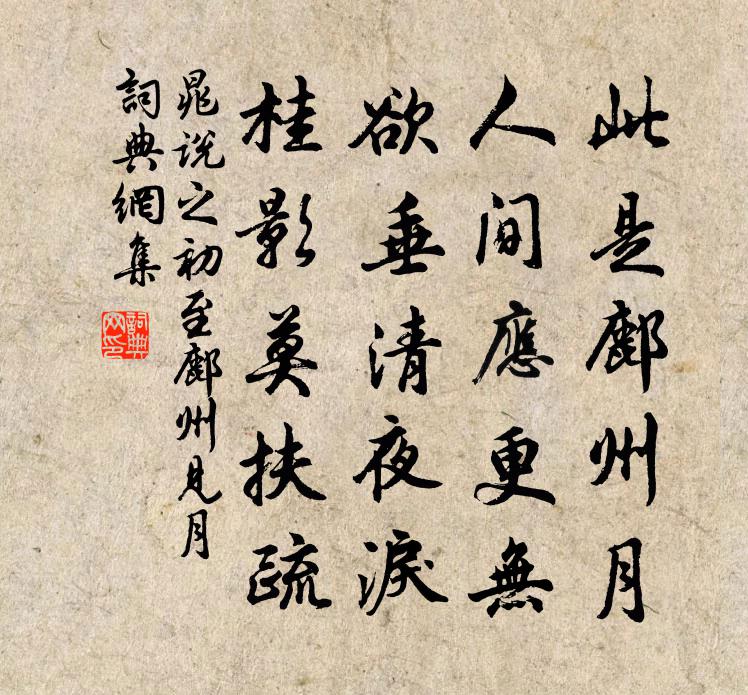 此是鄜州月
人間應更無
欲垂清夜淚
桂影莫扶疏
晁說之初至鄜州見月
詞典網集
詞典
网印